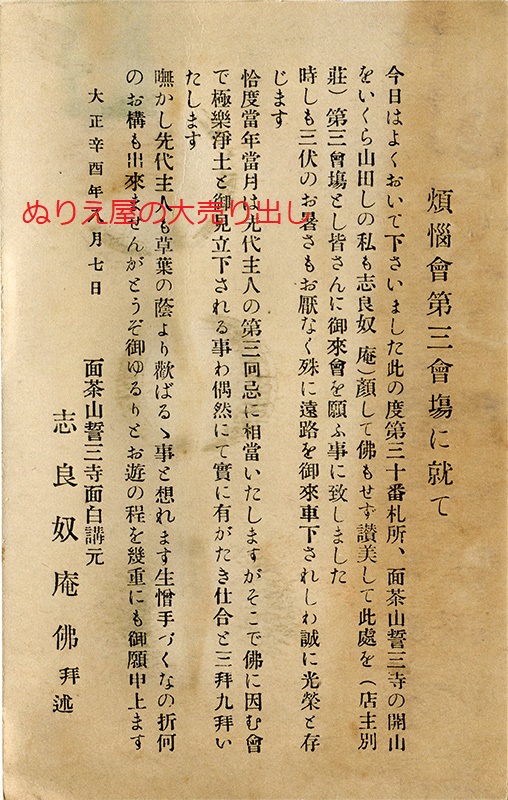 煩惱會第三會塲に就て
今日はよくおいで下さいました此の度第三十番札所、面茶山誓三寺の開山
をいくら山田しの私も志良奴庵)顔して佛もせず讃美して此處を(店主別
莊)第三會塲とし皆さんに御來會を願ふ事に致しました
時しも三伏のお暑さもお厭なく殊に遠路を御來車下されしわ誠に光榮と存
じます
恰度當年當月は先代主人の第三回忌に相當いたしますがそこで佛に因む會
で極樂淨土と御見立下される事わ偶然にて實に有がたき仕合と三拜九拜い
たします
嘸かし先代主人も草葉の蔭より歡ばるゝ事と想れます生憎手づくなの折何
のお構も出來ませんがとうぞ御ゆるりとお遊の程を幾重にも御願申上ます
大正辛酉年八月七日
面茶山誓三寺面白講元
志良奴庵佛拜述
ぬりえ屋の大売り出し